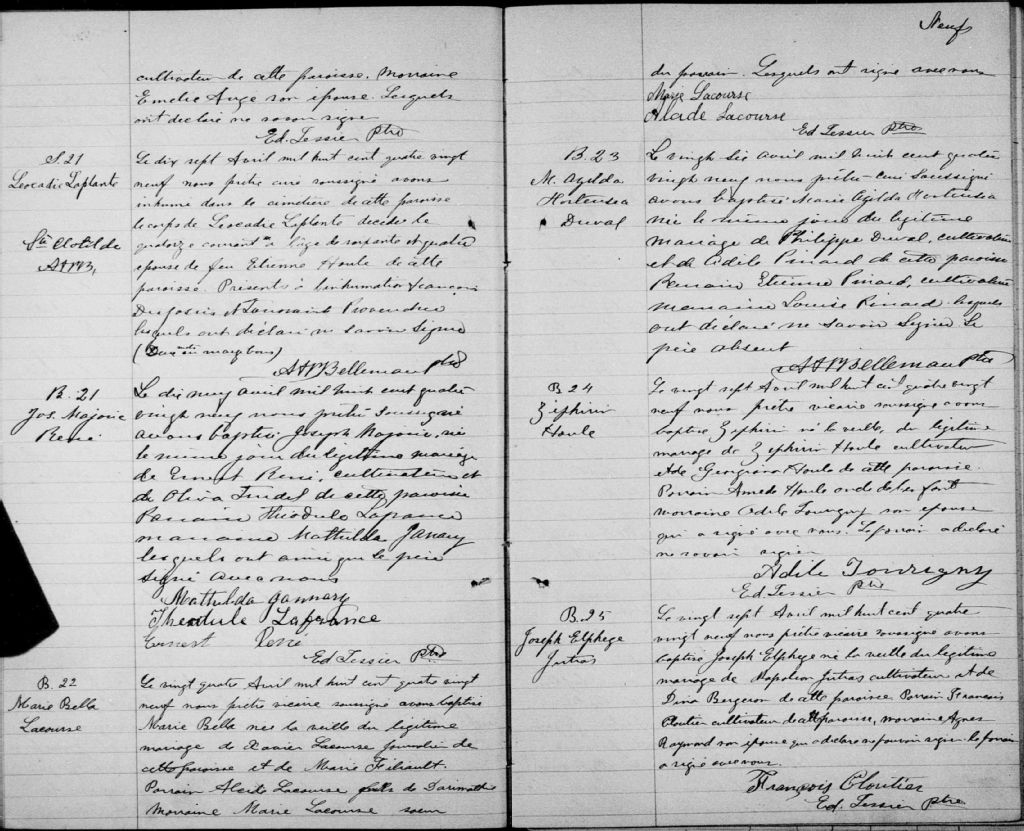 cultivateur de cette paroisse. Marraine
Emelie Auge son épouse. Lesquels
ont déclaré ne savoir signer
Ed. Tessier Ptre
S. 21
Leocadie Laplante
Ste Clotilde
Le dix sept Avril mil huit cent quatre vingt
neuf nous prêtre curé soussigné avons
inhumé dans le cimetière de cette paroisse
le corps de Leocadie Laplante décédée le
quatorze courant à l'age de soixante et quatre
épouse de feu Etienne Houle de cette
paroisse. Présents à l'inhumation François
Desfossés et Toussaint Provencher
lesquels ont déclaré ne savoir signer
Bellemare ptre
B. 21
Jos. Majorie
René
Le dix neuf avril mil huit cent quatre
vingt neuf nous prêtre soussigné
avons baptisé Joseph Majorie, né
le même jour du légitime mariage
de Ernest René, cultivateur et
de Oliva Trudel de cette paroisse
Parrain Théodule Lafrance
marraine Mathilda
lesquels ont ainsi que le père
signé avec nous
Mathilda
Theodule Lafrance
Ernest
Ed Tessier Ptre
B. 22
Marie Bella
Lacourse
Le vingt quatre Avril mil huit cent quatre vingt
neuf nous prêtre vicaire soussigné avons baptisé
Marie Bella née la veille du légitime
mariage de Xavier Lacourse journalier de
cette paroisse et de Marie
Parrain Alcide Lacourse
Marraine Marie Lacourse soeur
Neuf
du parrain. Lesquels ont signé avec nous
Marie Lacourse
Alcide Lacourse
Ed Tessier Ptre
B. 23
M. Agilda
Hortensea
Duval
Le vingt six avril mil huit cent quatre
vingt neuf nous prêtre curé soussigné
avons baptisé Marie Agilda Hortensea
née le même jour du légitime
mariage de Philippe Duval, cultivateur
et de Odile Pinard de cette paroisse
Parrain Etienne Pinard, cultivateur
marraine Louise Pinard lesquels
ont déclaré ne savoir signer Le
père absent
Bellemare ptre
B. 24
Zéphirin
Houle
Le vingt sept Avril mil huit cent quatre vingt
neuf nous prêtre vicaire soussigné avons
baptisé Zephirin né la veille, du légitime
mariage de Zephirin Houle cultivateur
et de Georgiana Houle de cette paroisse.
Parrain Amedé Houle oncle de l'enfant
marraine Odile Tourigny son épouse
qui a signé avec nous. Le parrain a déclaré
ne savoir signer
Adile Tourigny
Ed Tessier Ptre
B. 25
Joseph Elphege
Jutras
Le vingt sept Avril mil huit cent quatre
vingt neuf nous prêtre vicaire soussigné avons
baptisé Joseph Elphege né la veille du légitime
mariage de Napoléon Jutras cultivateur et de
Dina Bergeron de cette paroisse Parrain François
Cloutier cultivateur de cette paroisse, marraine Agnes
Raymond son épouse qui a déclaré ne pouvoir signer. Le parrain
a signé avec nous.
François Cloutier
Ed. Tessier Ptre